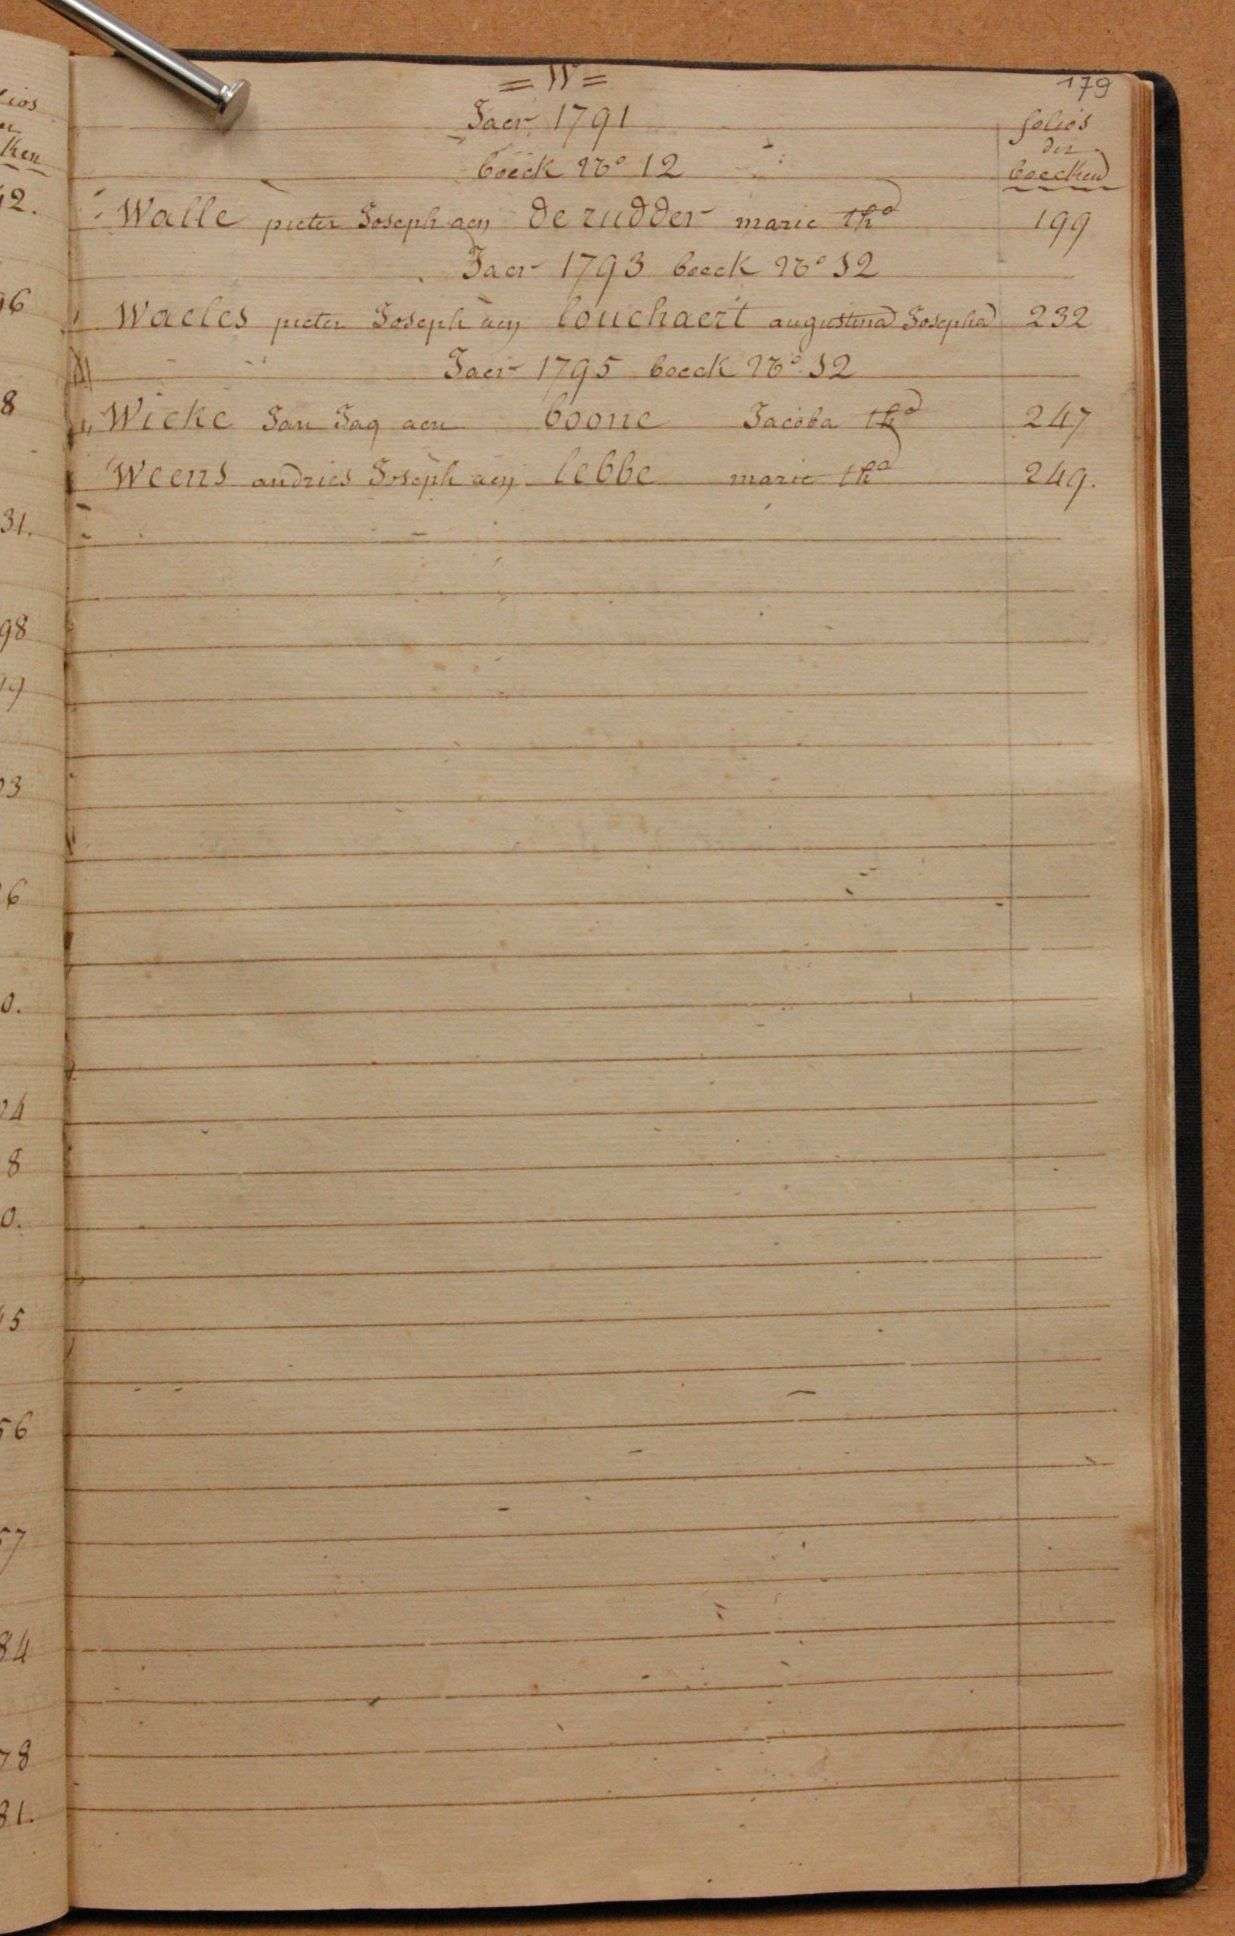 = W =
179
Jaer 1791
folios
der
boecken
boeck No 12
Walle pieter Joseph aen De rudder marie tha 199
Jaer 1793 boeck No 12
Waeles pieter Joseph aen Couchaert augustina Josepha 232
Jaer 1795 boeck No 12
Wicke Jan Jaq aen boone Jacoba tha 247
Weens andries Joseph aen lebbe marie tha 249.
42.
96
8
31.
98
19
03
6
0.
04
8
0.
15
56
57
84
78
81.